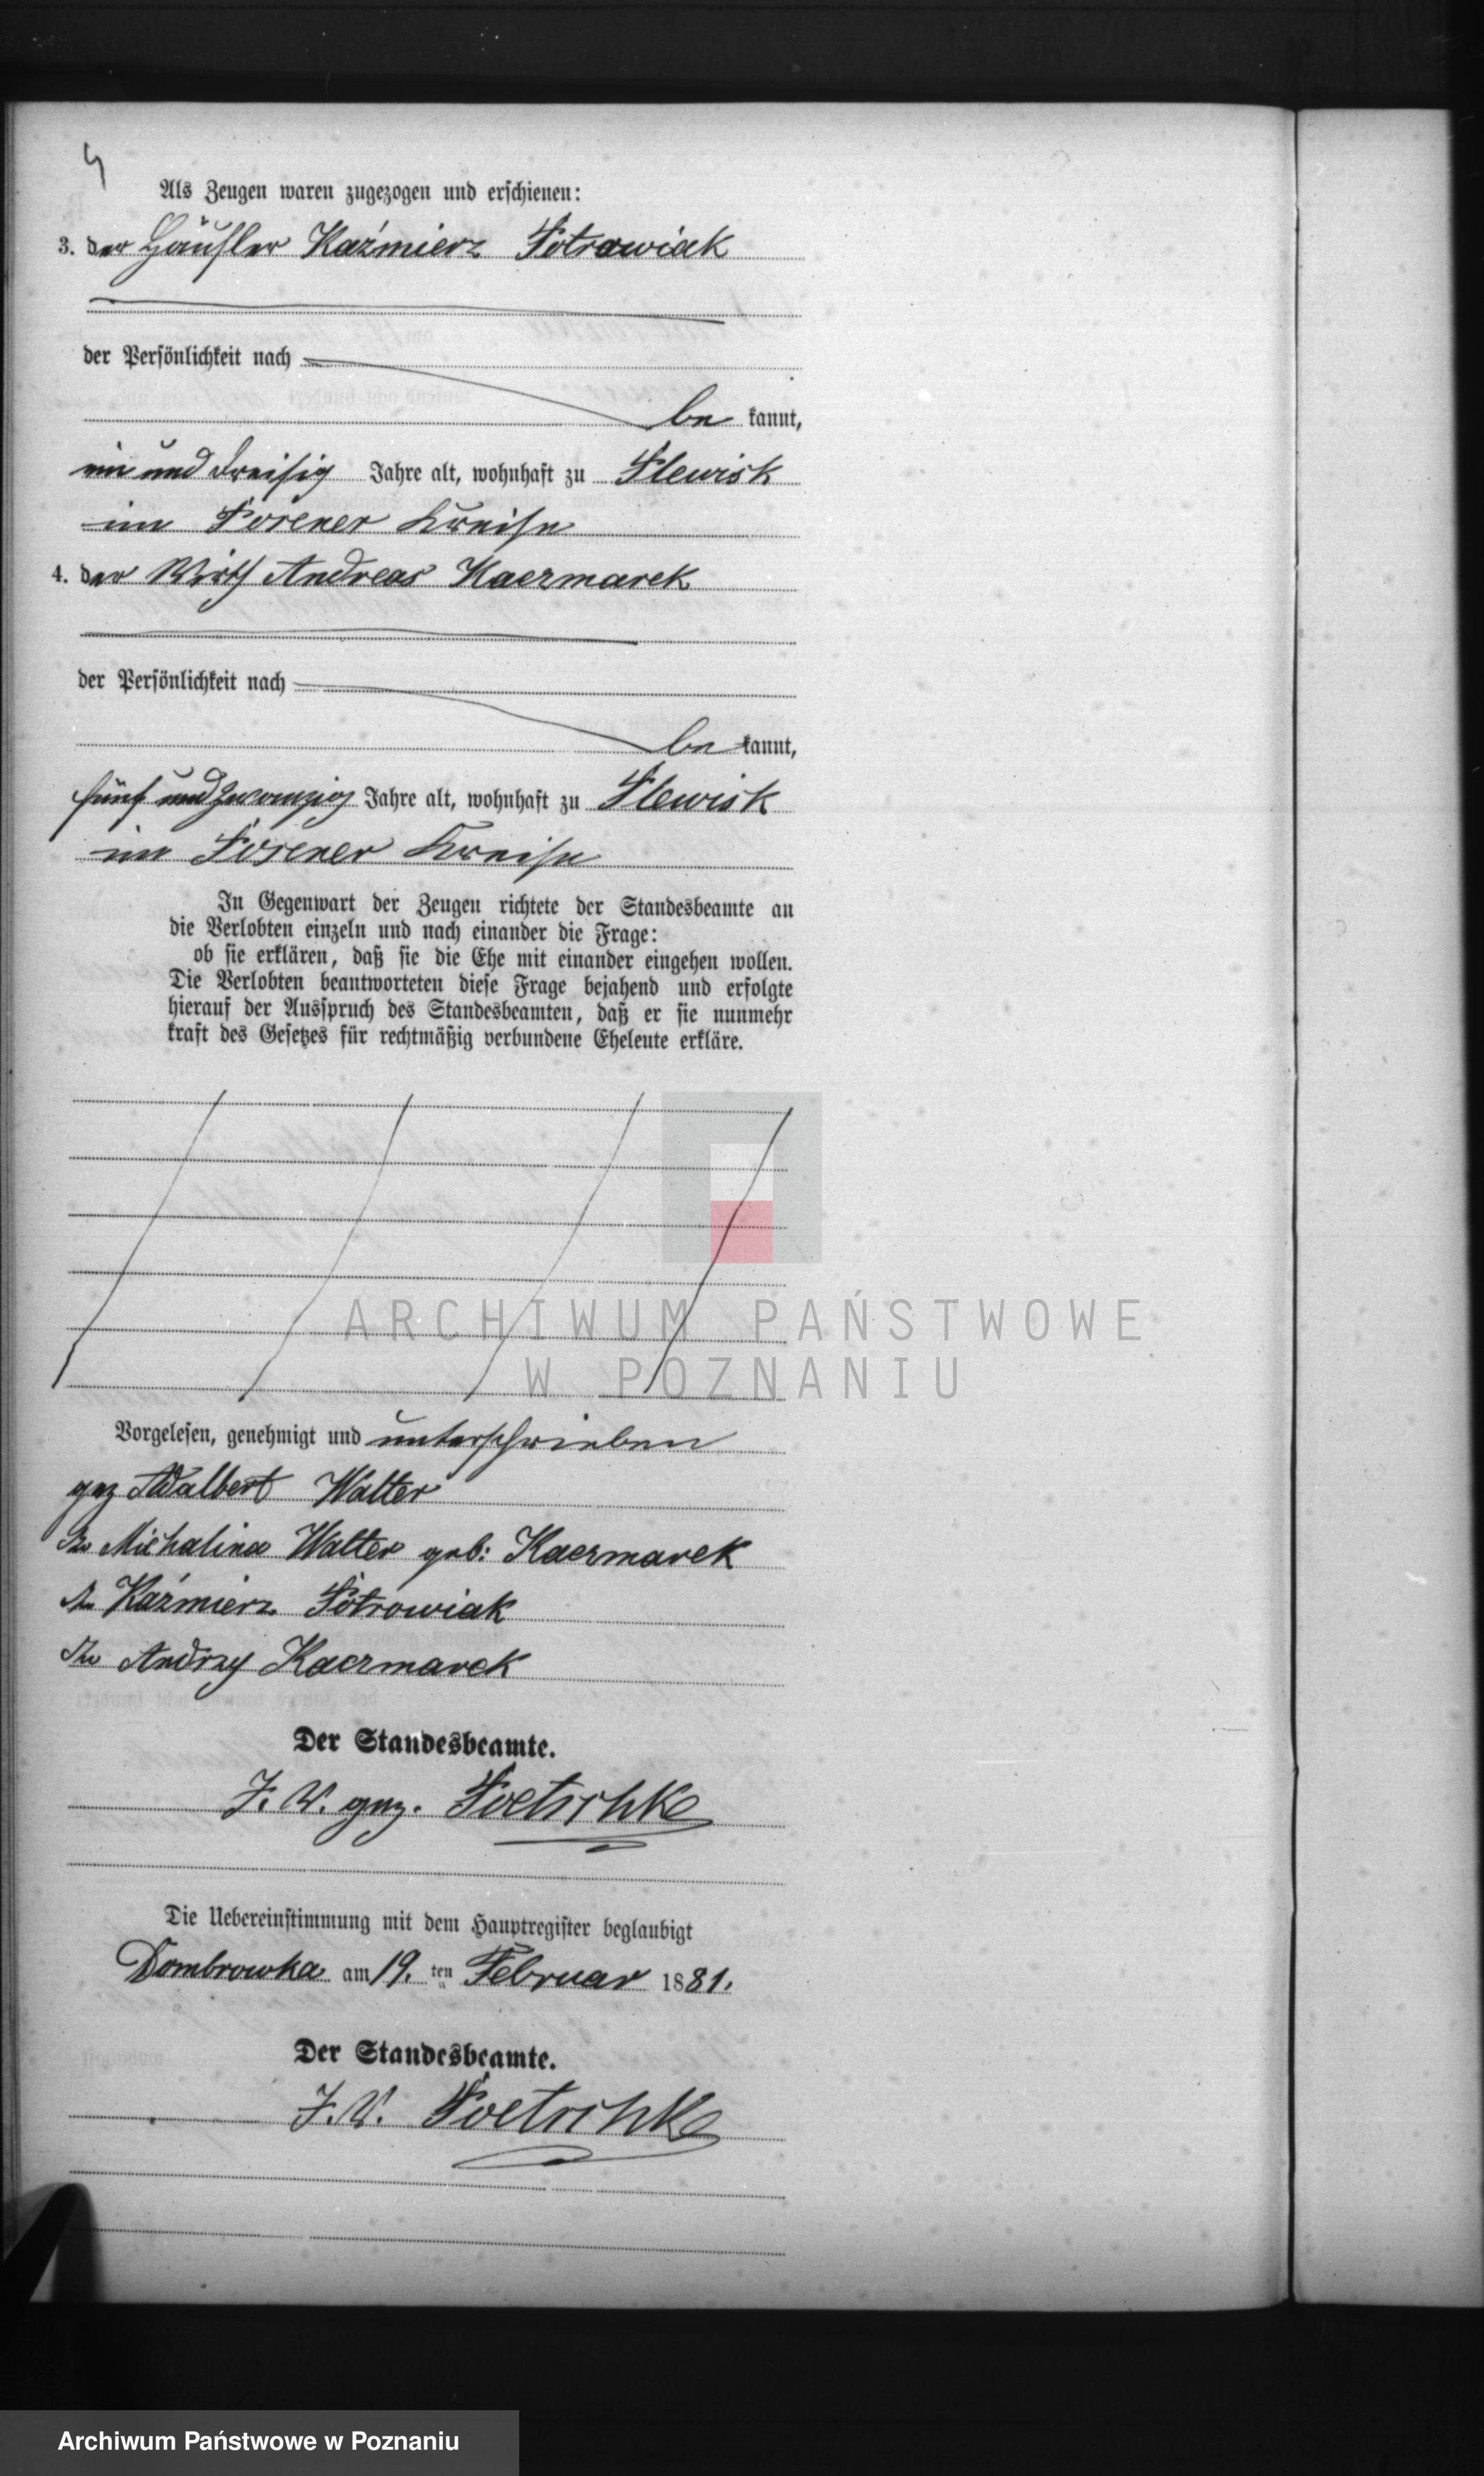 4
Als Zeugen waren zugezogen und erschienen:
3. der Häusler Kaźmierz Potrawiak
der Persönlichkeit nach
be kannt,
ein und dreisig Jahre alt, wohnhaft zu Plewisk
im Posener Kreise
4. der Wirth Andreas Kaczmarek
der Persönlichkeit nach
be kannt,
fünf und zwanzig Jahre alt, wohnhaft zu Plewisk
im Posener Kreise
In Gegenwart der Zeugen richtete der Standesbeamte an
die Verlobten einzeln und nach einander die Frage:
ob sie erklären, daß sie die Ehe mit einander eingehen wollen.
Die Verlobten beantworteten diese Frage bejahend und erfolgte
hierauf der Ausspruch des Standesbeamten, daß er sie nunmehr
kraft des Gesetzes für rechtmäßig verbundene Eheleute erkläre.
ARCHIWUM PAŃSTWOWE
W POZNANIU
Vorgelesen, genehmigt und unterschrieben
gez Adalbert Walter
Michalina Walter geb: Kaczmarek
Kaźmierz Potrowiak
Andrzy Kaczmarek
Der Standesbeamte.
J. V. gez. Poetschke
Die Uebereinstimmung mit dem Hauptregister beglaubigt
Dombrowka am 19. ten Februar 1881.
Der Standesbeamte.
J. V. Poetschke
Archiwum Państwowe w Poznaniu